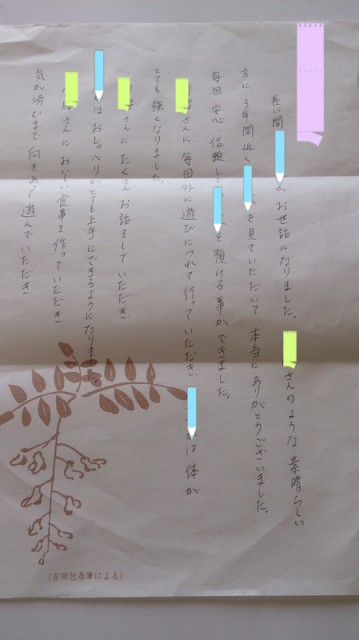 長い間 お世話になりました。 さんのような 素晴らしい
方に3年間近く を見ていただいて 本当にありがとうございました。
毎回 安心 信頼し を預ける事ができました。
さんに毎回外に遊びにつれて行っていただき は 体が
とても強くなりました。
さんにたくさんお話をしていただき
はおしゃべりがとても上手にできるようになりました。
さんにおいしい食事を作っていただき
気が済むまで向きあって遊んでいただき
(吉田包春筆による)